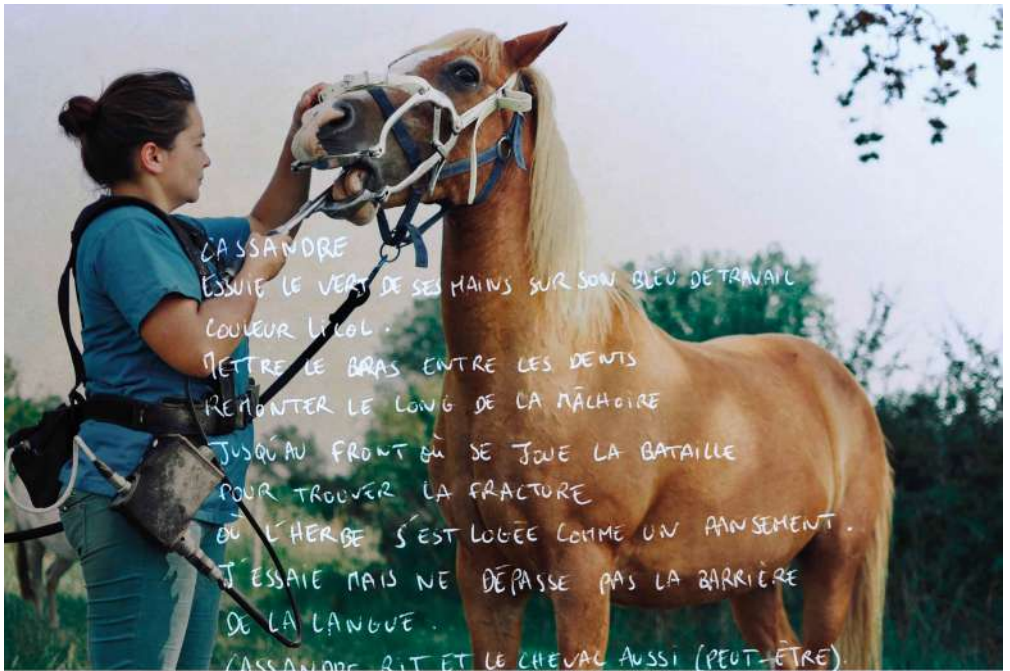 CASSANDRE
ESSUIE LE VERT DE SES MAINS SUR SON BLEU DE TRAVAIL
COULEUR LICOL.
METTRE LE BRAS ENTRE LES DENTS
REMONTER LE LONG DE LA MÂCHOIRE
JUSQU'AU FRONT OÙ SE JOUE LA BATAILLE
POUR TROUVER LA FRACTURE
OÙ L'HERBE S'EST LOGÉE COMME UN PANSEMENT.
J'ESSAIE MAIS NE DÉPASSE PAS LA BARRIÈRE
DE LA LANGUE.
CASSANDRE RIT ET LE CHEVAL AUSSI (PEUT-ÊTRE).